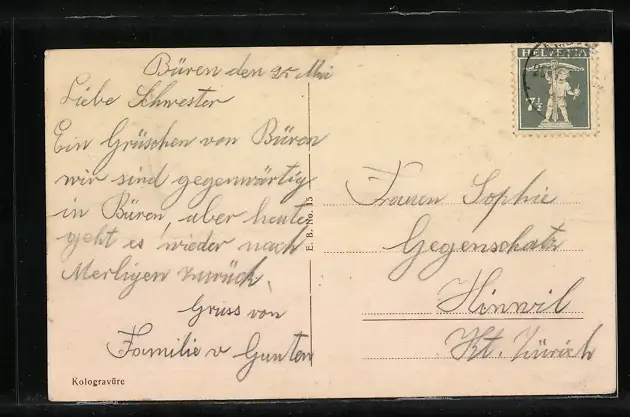 Büren den 25 Mai
Liebe Schwester
Ein Grüschen von Büren
wir sind gegenwärtig
in Büren, aber heute
geht es wieder nach
Merligen zurück,
Gruss von
Familie v Gunten
Kologravüre
E. B. No. 15
HELVETIA
7½
Frauen Sophie
Gegenschatz
Hinwil
Kt. Zürich